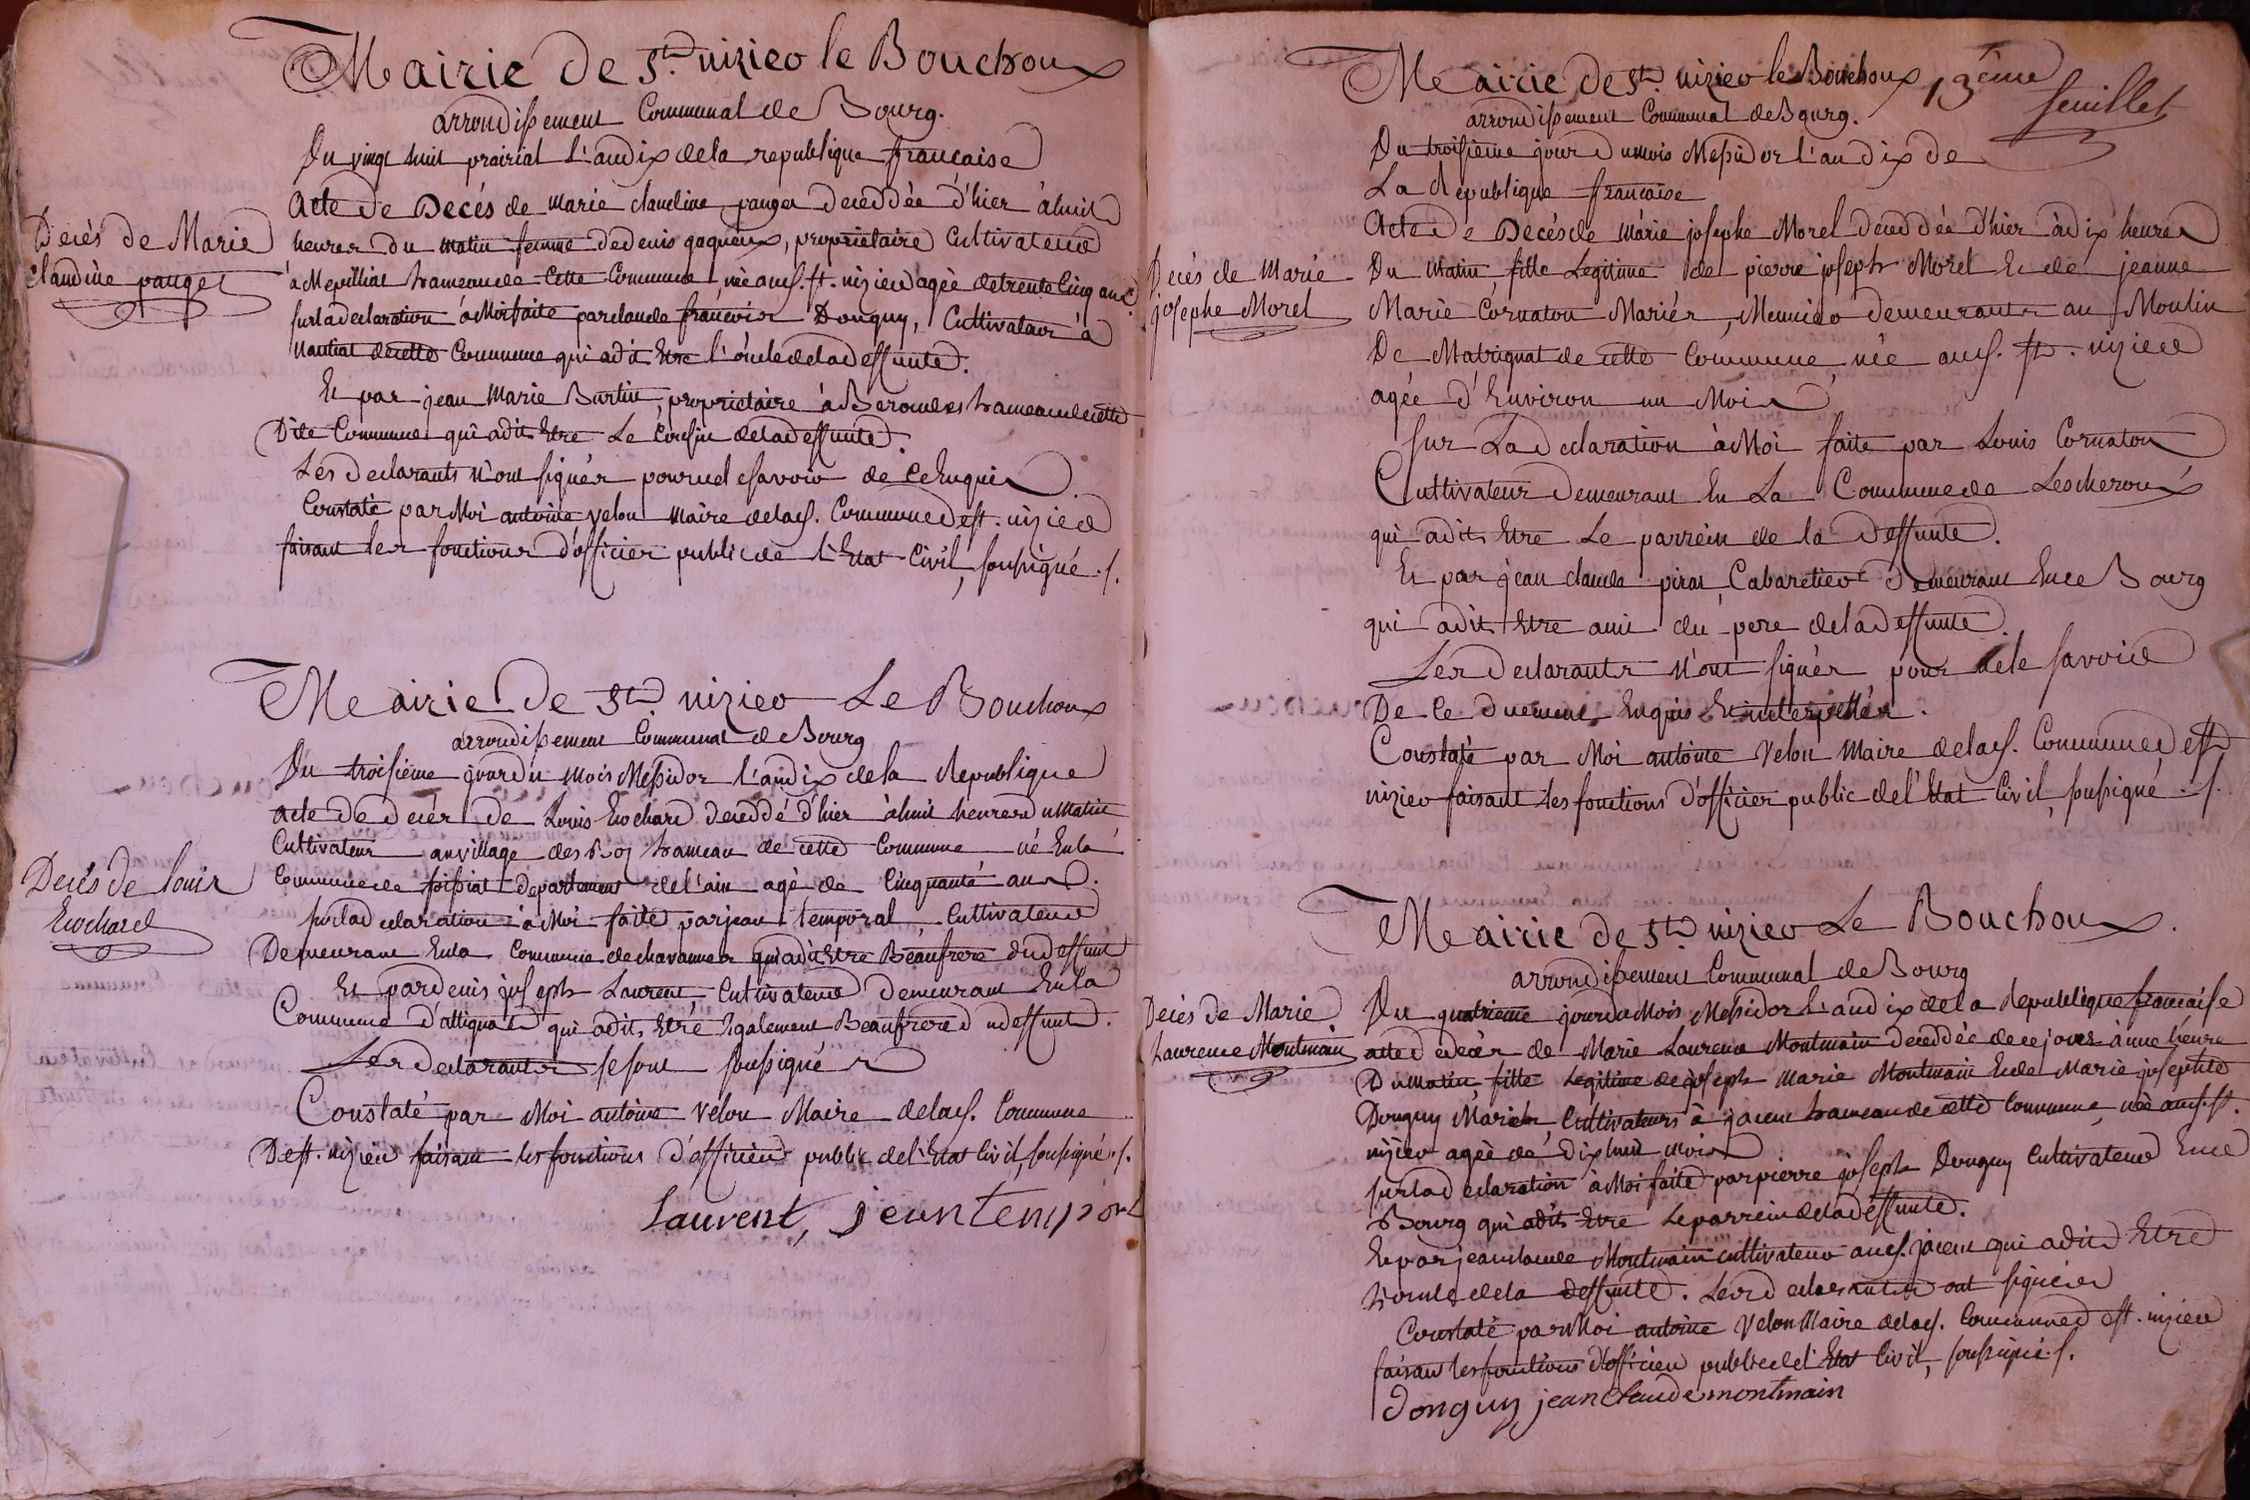 Mairie de St. nizier le Bouchoux
arrondissement Communal de Bourg.
Du vingt huit prairial l'an dix de la republique française
Decés de Marie
claudine panget
Acte de Decés de marie claudine panget deceddée d'hier à huit
heures du matin femme de denis gaqueux, proprietaire Cultivateur
à Mepilliat hameau de Cette Commune, née aud. st. nizier agée de trente Cinq ans
sur la declaration à Moi faite par claude françois Donguy, Cultivateur à
de cette Commune qui a dit Etre l'oncle de la deffunte.
Et par jean Marie Burtin, proprietaire à hameau de cette
Dite Commune qui a dit Etre Le Cousin de la deffunte.
Les declarants n'ont signés pour ne le savoir de Ce Enquis
Constaté par Moi antoine velon Maire de lad. Commune de st. nizier
faisant les fonctions d'officier public de l'Etat Civil, soussigné ./.
Mairie De St. nizier Le Bouchoux
arrondissement Communal de Bourg
Du troisième jour du mois Messidor l'an dix de la Republique
Decés de louis
Ecochard
acte de decés de Louis Ecochard deceddé d'hier à huit heures du matin
Cultivateur au village des hameau de cette Commune né En la
Commune de pissiat departement de l'ain agé de Cinquante ans.
sur la declaration à Moi faite par jean temporal, Cultivateur
Demeurant En la Commune de chavannes qui a dit Etre Beaufrere du deffunt
Et par denis joseph Laurent, Cultivateur demeurant En la
Commune d'attignat qui a dit Etre Egalement Beaufrere du deffunt.
Les declarants se sont soussignés
Constaté par Moi antoine velon Maire de lad. Commune
De st. nizier faisant les fonctions d'officier public de l'Etat Civil, soussigné ./.
Laurent, jean temporal
Mairie de St. nizier le Bouchoux
13ème
feuillet
arrondissement Communal de Bourg.
Du troisieme jour du mois Messidor l'an dix de
La Republique française
Decés de Marie
josephe Morel
Acte de Decés de marie josephe Morel deceddée d'hier à dix heures
Du Matin, fille Legitime de pierre joseph Morel Et de jeanne
Marie Cornaton Mariés, Meunier demeurants au Moulin
De Matrignat de cette Commune, née aud. st. nizier
agée d'Environ un Mois
sur La declaration à Moi faite par Louis Cornaton
Cultivateur Demeurant En La Commune de Lescheroux
qui a dit Etre Le parrein de la Deffunte.
Et par jean claude pirat, Cabaretier Demeurant En ce Bourg
qui a dit Etre ami du pere de la deffunte.
Les declarants n'ont signés pour ne le savoir
De Ce duement Enquis Et interpellés.
Constaté par Moi antoine Velon Maire de lad. Commune de st.
nizier faisant les fonctions d'officier public de l'Etat Civil, soussigné ./.
Mairie de St. nizier Le Bouchoux.
arrondissement Communal de Bourg
Decés de Marie
Laurence Montmain
Du quatrieme jour du Mois Messidor L'an dix de la Republique française
acte de decés de Marie Laurence Montmain deceddée de ce jour à une heure
Du matin, fille Legitime de joseph Marie Montmain Et de Marie josephte
Donguy Mariés, Cultivateurs à jaeux hameau de cette Commune, née aud. st.
nizier agée de dix huit mois
sur la declaration à Moi faite par pierre joseph Donguy Cultivateur En ce
Bourg qui a dit Etre Le parrein de la deffunte.
Et par jean claude Montmain cultivateur aud. jaeux qui a dit Etre
l'oncle de la deffunte. Les declarants ont signés
Constaté par Moi antoine Velon Maire de lad. Commune de st. nizier
faisant les fonctions d'officier public de l'Etat Civil, soussigné ./.
Donguy jean Claude montmain